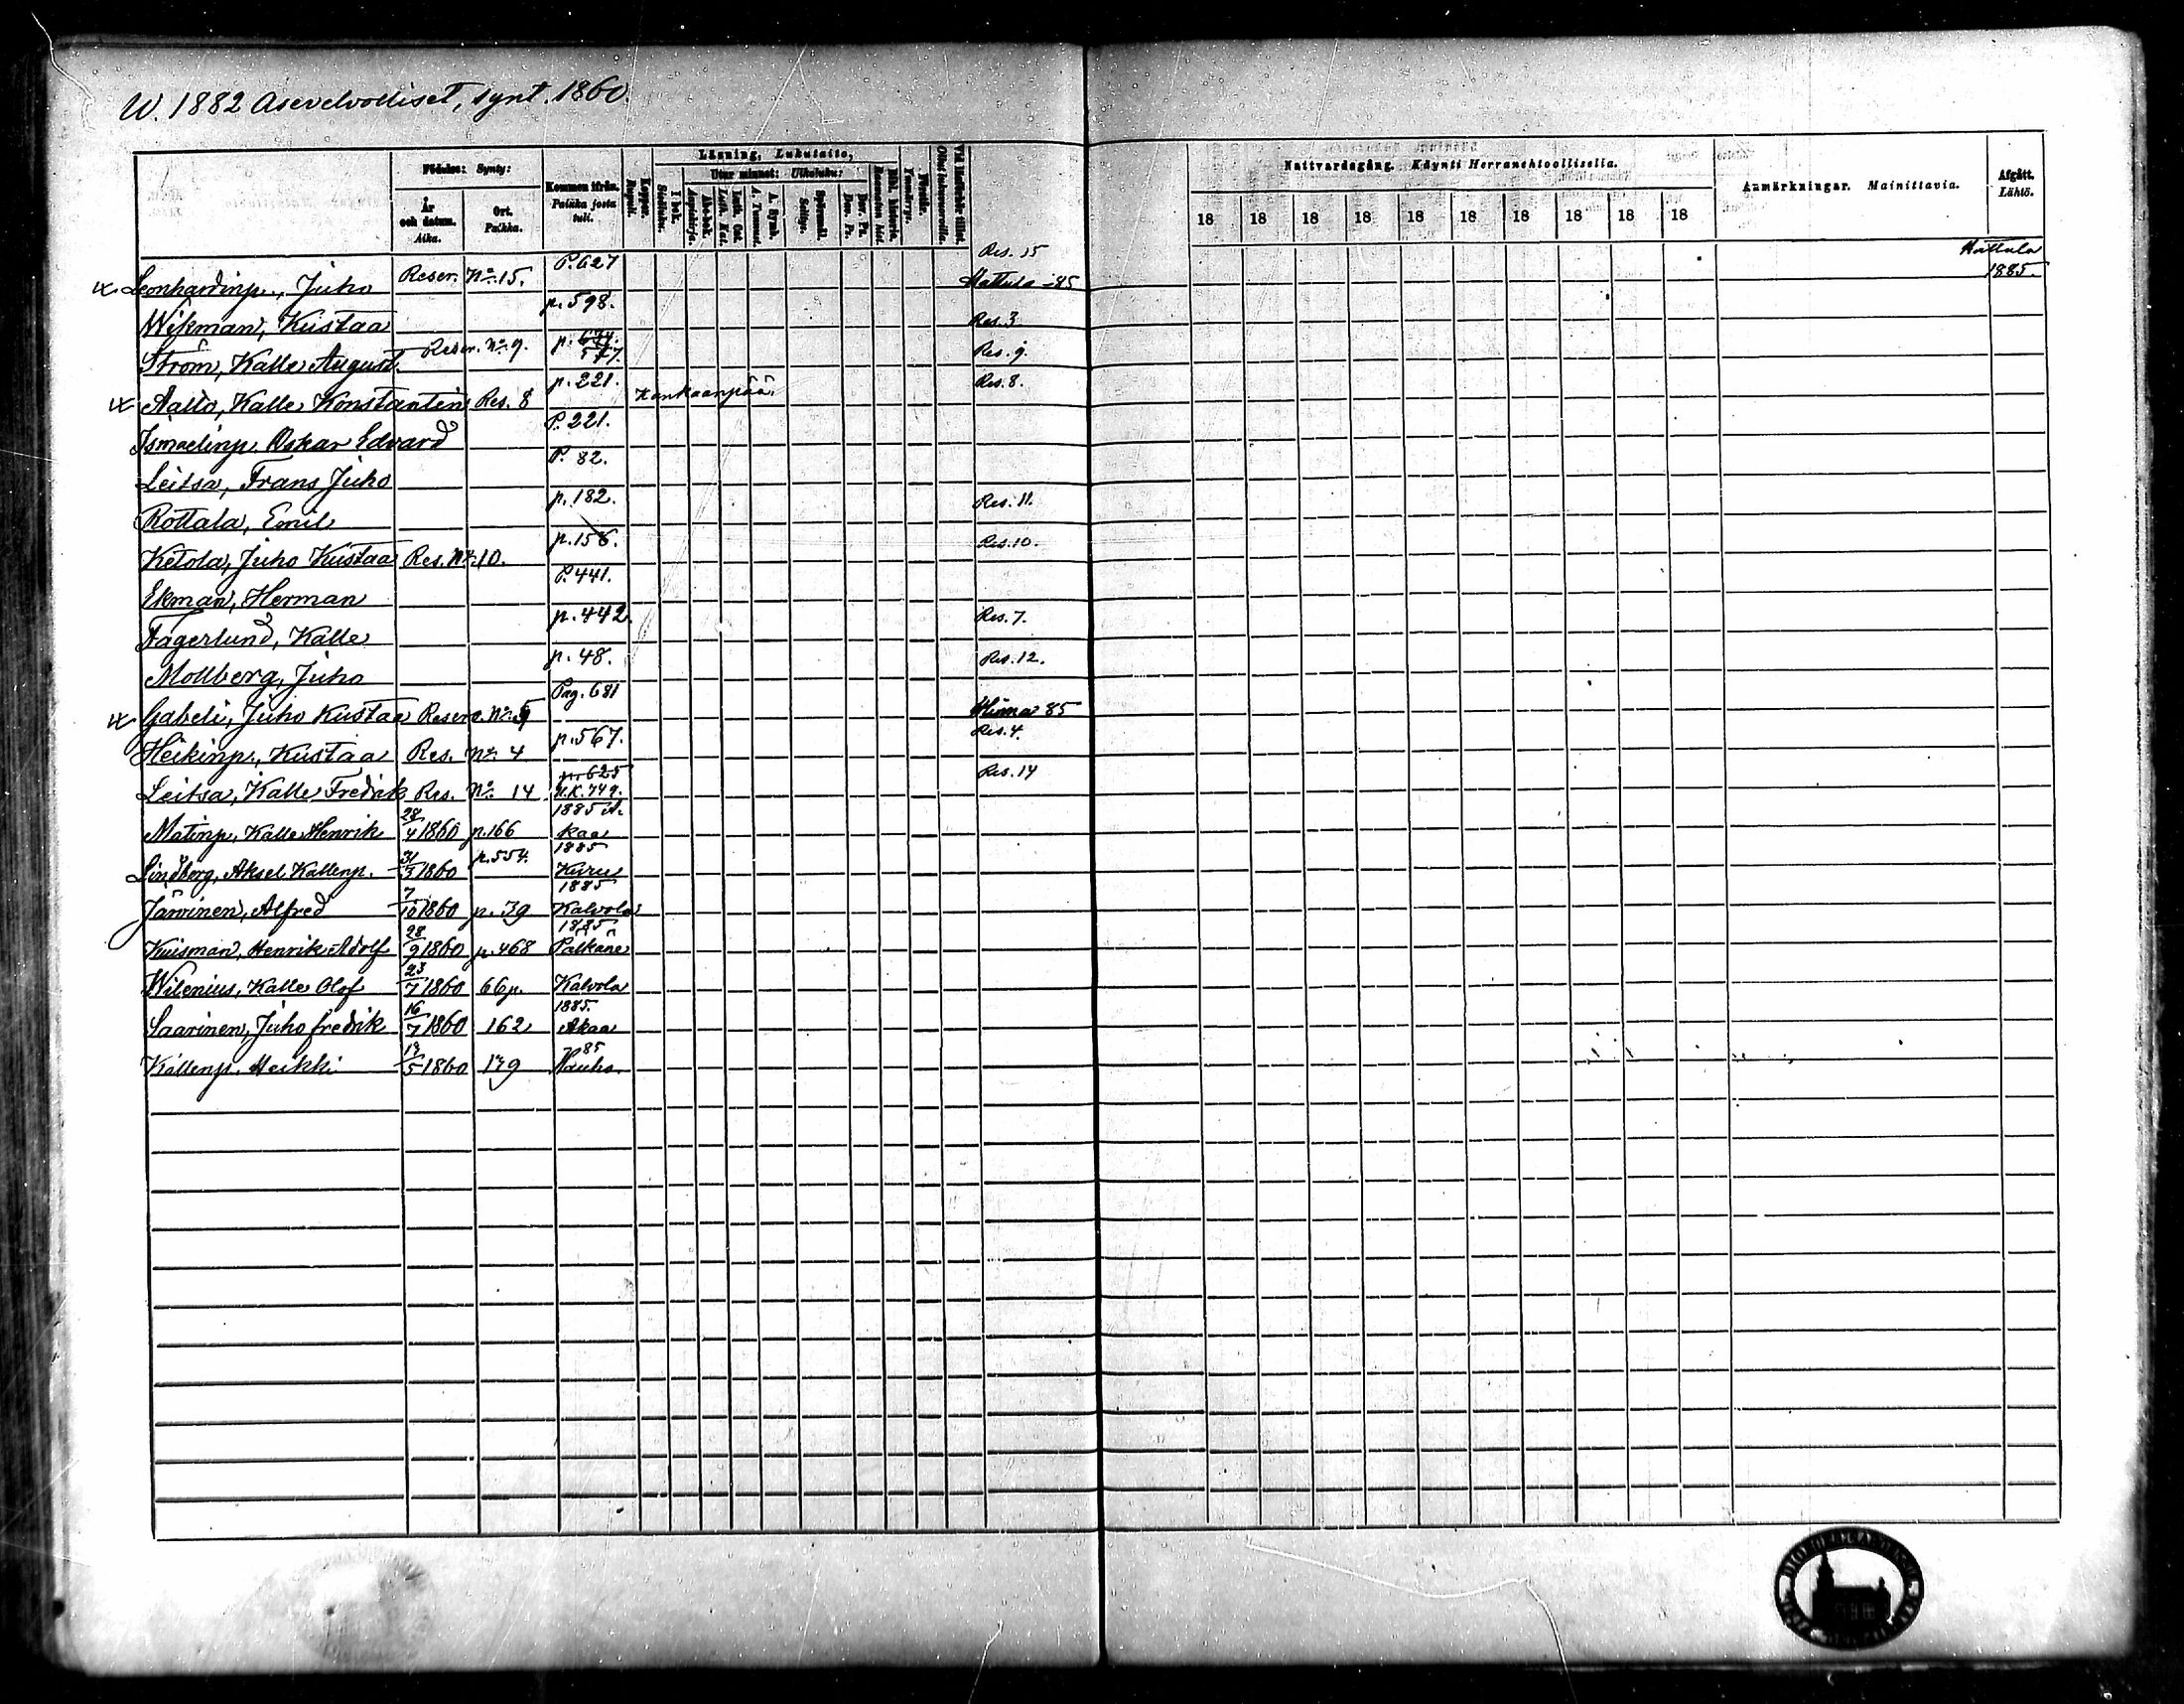 W. 1882 Asevelvolliset, synt. 1860.
Födelse: Synty:
År och datum. Aika.
Ort. Paikka.
Kommen ifrån. Paikka josta tuli.
Koppor. Rupuli.
Läsning, Lukutaito,
Sisäluku. I bok.
Utur minnet: Ulkoluku:
Aapiskirja. Abc-bok.
Luth. Kat.
A. Tunnust. A. Symb.
Selitys. Spörsmål.
Dav. Ps. Dav. Ps.
Nattvardsgång. Käynti Herranehtoollisella.
18 18 18 18 18 18 18 18 18 18
Anmärkningar. Mainittavia.
Afgått. Lähtö.
Leonhardinp., Juho Reser. No. 15. P. 627 Res. 15 Hattula -85 Hattula 1885.
Wikman, Kustaa p. 598. Res. 3
Ström, Kalle August. Reser. No. 9. p. 577. Res. 9.
Aalto, Kalle Konstantin Res. 8 p. 221. Kankaanpää. Res. 8.
Ismaelinp. Oskar Edvard P. 221.
Leitsa, Frans Juho P. 82.
Rottala, Emil p. 182. Res. 11.
Ketola, Juho Kustaa Res. No. 10. p. 156. Res. 10.
Ekman, Herman P. 441.
Fagerlund, Kalle p. 442. Res. 7.
Mollberg, Juho p. 48. Res. 12.
Gabeli, Juho Kustaa Reserv. No. 5 Pag. 681 85
Heikinp., Kustaa Res. No. 4 p. 567. Res. 4.
Leitsa, Kalle Fredrik Res. No. 14 p. 625 U.K. 749. Res. 14
Matinp, Kalle Henrik 28/4 1860 p. 166 1885 A-kaa
Lindberg, Aksel Kallenp. 31/3 1860 p. 554. 1885 Kuru
Järvinen, Alfred 7/10 1860 p. 39 1885 Kalvola
Kuisman, Henrik Adolf 28/9 1860 p. 468 1885 Pälkäne
Wilenius, Kalle Olof 23/7 1860 66 p. Kalvola
Saarinen, Juho fredrik 16/7 1860 162 1885. Akaa
Kallenp. Heikki 5 1860 179 85 Hauho